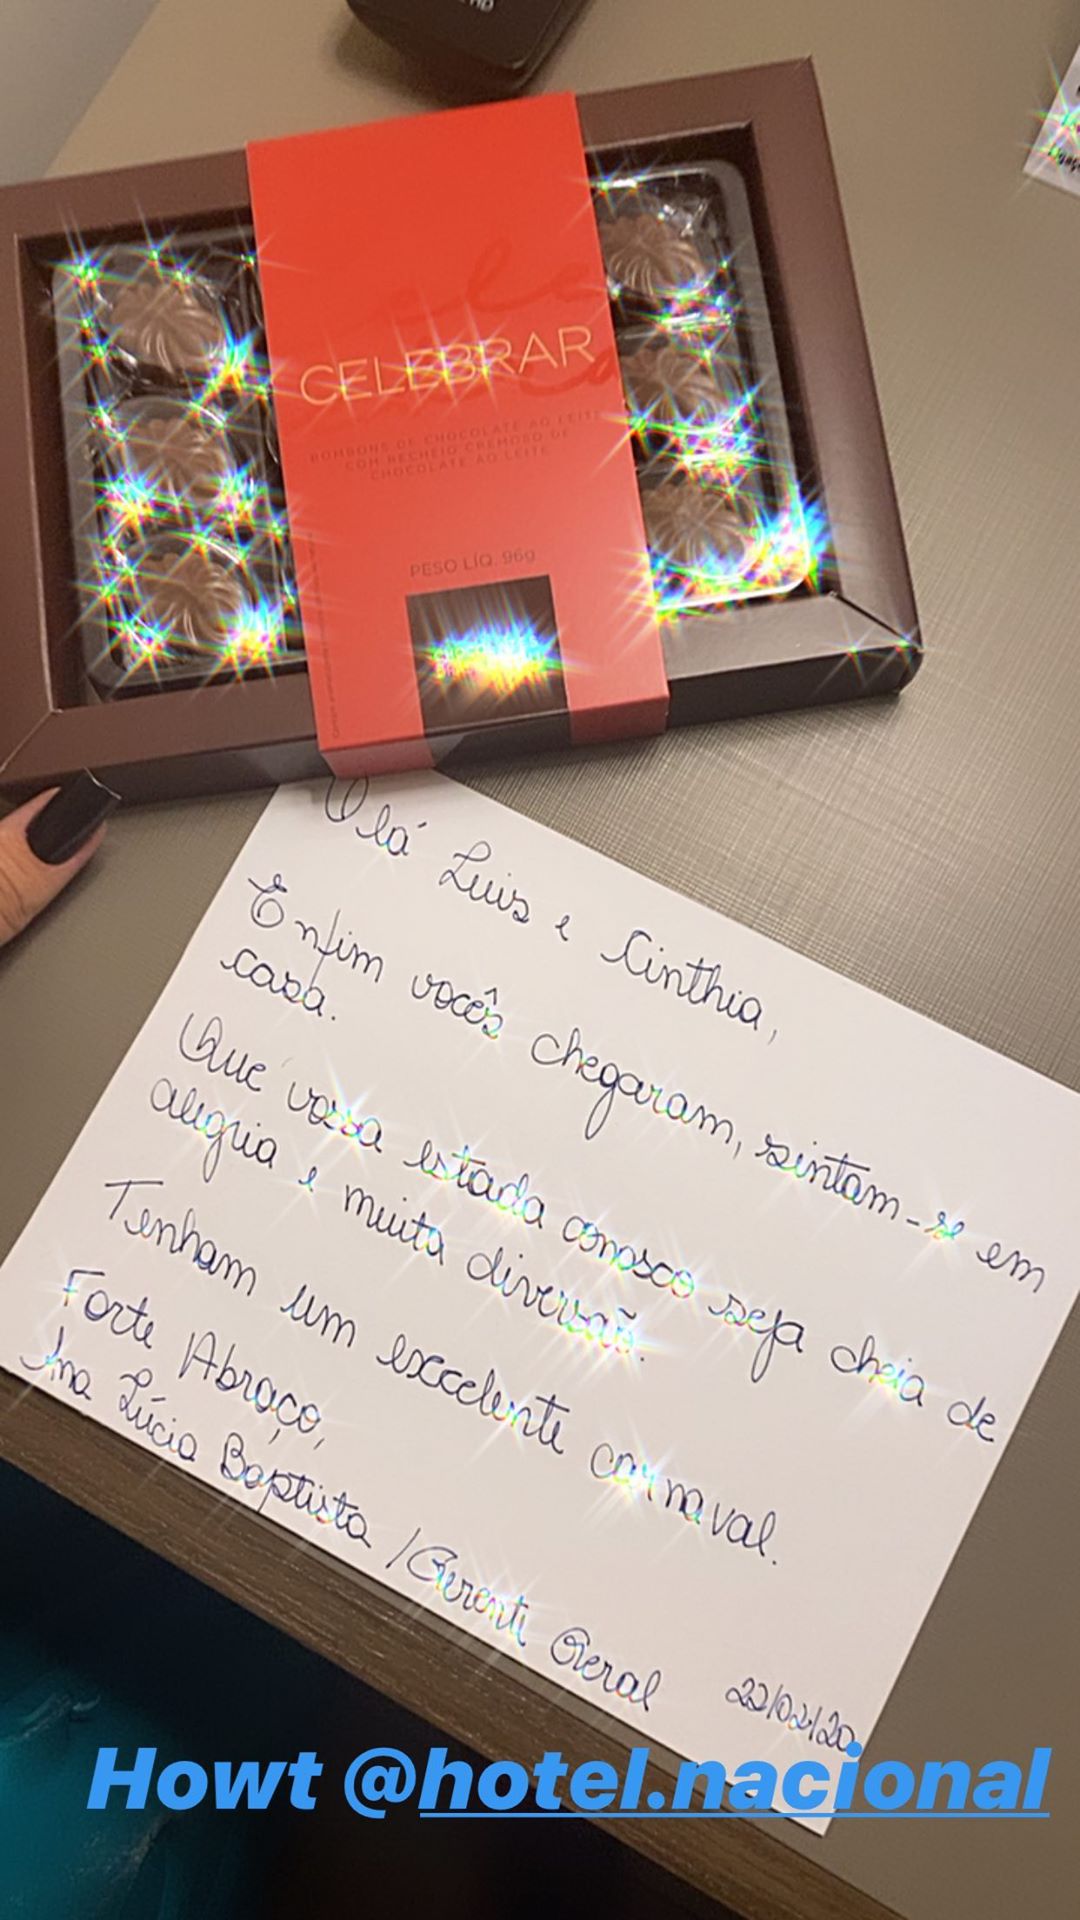 HD
CELEBRAR
BOMBONS DE CHOCOLATE AO LEITE
COM RECHEIO CREMOSO DE
CHOCOLATE AO LEITE
PESO LÍQ. 96g
Olá Luis e Cinthia,
Enfim vocês chegaram, sintam-se em
casa.
Que vossa estada conosco seja cheia de
alegria e muita diversão.
Tenham um excelente carnaval.
Forte Abraço,
Ana Lúcia Baptista / Gerente Geral
22/02/20
Howt @hotel.nacional